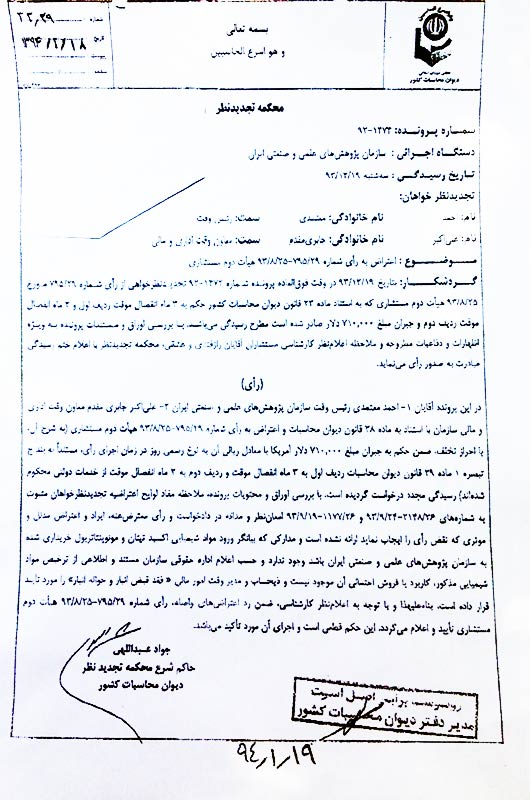 بسمه تعالی
و هو اسرع الحاسبین
شماره
۱۳۹۴/۲/۱۸
تاریخ
دیوان محاسبات کشور
محکمه تجدیدنظر
شمـاره پرونـده: ۱۴۷۴-۹۲
دستگـاه اجرائـی : سازمان پژوهش‌های علمی و صنعتی ایران
تـاریخ رسیـدگـی : سه‌شنبه ۹۳/۱۲/۱۹
تجدیدنظر خواهان:
نام: احمد نام خانوادگی: معتمدی سمت: رئیس وقت
نام: علی‌اکبر نام خانوادگی: جابری‌مقدم سمت: معاون وقت اداری و مالی
مـوضـوع : اعتراض به رأی شماره ۷۹۵/۲۹-۹۳/۸/۲۵ هیأت دوم مستشاری
گـردشکـار: بتاریخ ۹۳/۱۲/۱۹ در وقت فوق‌العاده پرونده شماره ۱۴۷۴-۹۲ تجدیدنظرخواهی از رأی شماره ۷۹۵/۲۹ مورخ
۹۳/۸/۲۵ هیأت دوم مستشاری که به استناد ماده ۲۳ قانون دیوان محاسبات کشور حکم به ۳ ماه انفصال موقت ردیف اول و ۲ ماه انفصال
موقت ردیف دوم و جبران مبلغ ۷۱۰,۰۰۰ دلار صادر شده است مطرح رسیدگی می‌باشد. با بررسی اوراق و مستندات پرونده به ویژه
اظهارات و دفاعیات مطروحه و ملاحظه اعلام‌نظر کارشناسی مستشاران آقایان و محکمه تجدیدنظر با اعلام ختم رسیدگی
مبادرت به صدور رأی می‌نماید.
(رأی)
در این پرونده آقایان ۱- احمد معتمدی رئیس وقت سازمان پژوهش‌های علمی و صنعتی ایران ۲- علی‌اکبر جابری مقدم معاون وقت اداری
و مالی سازمان با استناد به ماده ۲۸ قانون دیوان محاسبات و اعتراض به رأی شماره ۷۹۵/۲۹-۹۳/۸/۲۵ هیأت دوم مستشاری (به شرح آن،
با احراز تخلف، ضمن حکم به جبران مبلغ ۷۱۰,۰۰۰ دلار آمریکا با معادل ریالی آن به نرخ رسمی روز در زمان اجرای رأی، مستنداً به بند ج
تبصره ۱ ماده ۳۹ قانون دیوان محاسبات ردیف اول به ۳ ماه انفصال موقت و ردیف دوم به ۲ ماه انفصال موقت از خدمات دولتی محکوم
شده‌اند) رسیدگی مجدد درخواست گردیده است. با بررسی اوراق و محتویات پرونده، ملاحظه مفاد لوایح اعتراضیه تجدیدنظرخواهان مثبوت
به شماره‌های ۲۱۴۸/۲۶-۹۳/۹/۲۴ و ۱۱۷۷/۲۶-۹۳/۹/۱۹ امعان‌نظر و مداقه در دادخواست و رأی معترض‌عنه، ایراد و اعتراض مدلل و
موثری که نقض رأی را ایجاب نماید ارائه نشده است و مدارکی که بیانگر ورود مواد شیمیایی اکسید تهتان و مونوپنتاتریول خریداری شده
به سازمان پژوهش‌های علمی و صنعتی ایران باشد وجود ندارد و حسب اعلام اداره حقوقی سازمان مستند و اطلاعی از ترخیص مواد
شیمیایی مذکور، کاربرد یا فروش احتمالی آن موجود نیست و ذیحساب و مدیر وقت امور مالی « فقد قبض انبار و حواله انبار» را مورد تأیید
قرار داده است. بناءعلیهذا و با توجه به اعلام‌نظر کارشناسی، ضمن رد اعتراض‌های واصله، رأی شماره ۷۹۵/۲۹-۹۳/۸/۲۵ هیأت دوم
مستشاری تأیید و اعلام می‌گردد. این حکم قطعی است و اجرای آن مورد تأکید می‌باشد.
جواد عبداللهی
حاکم شرع محکمه تجدید نظر
دیوان محاسبات کشور
برابر اصل است
مدیر دفتر دیوان محاسبات کشور
۹۴/۱/۱۹